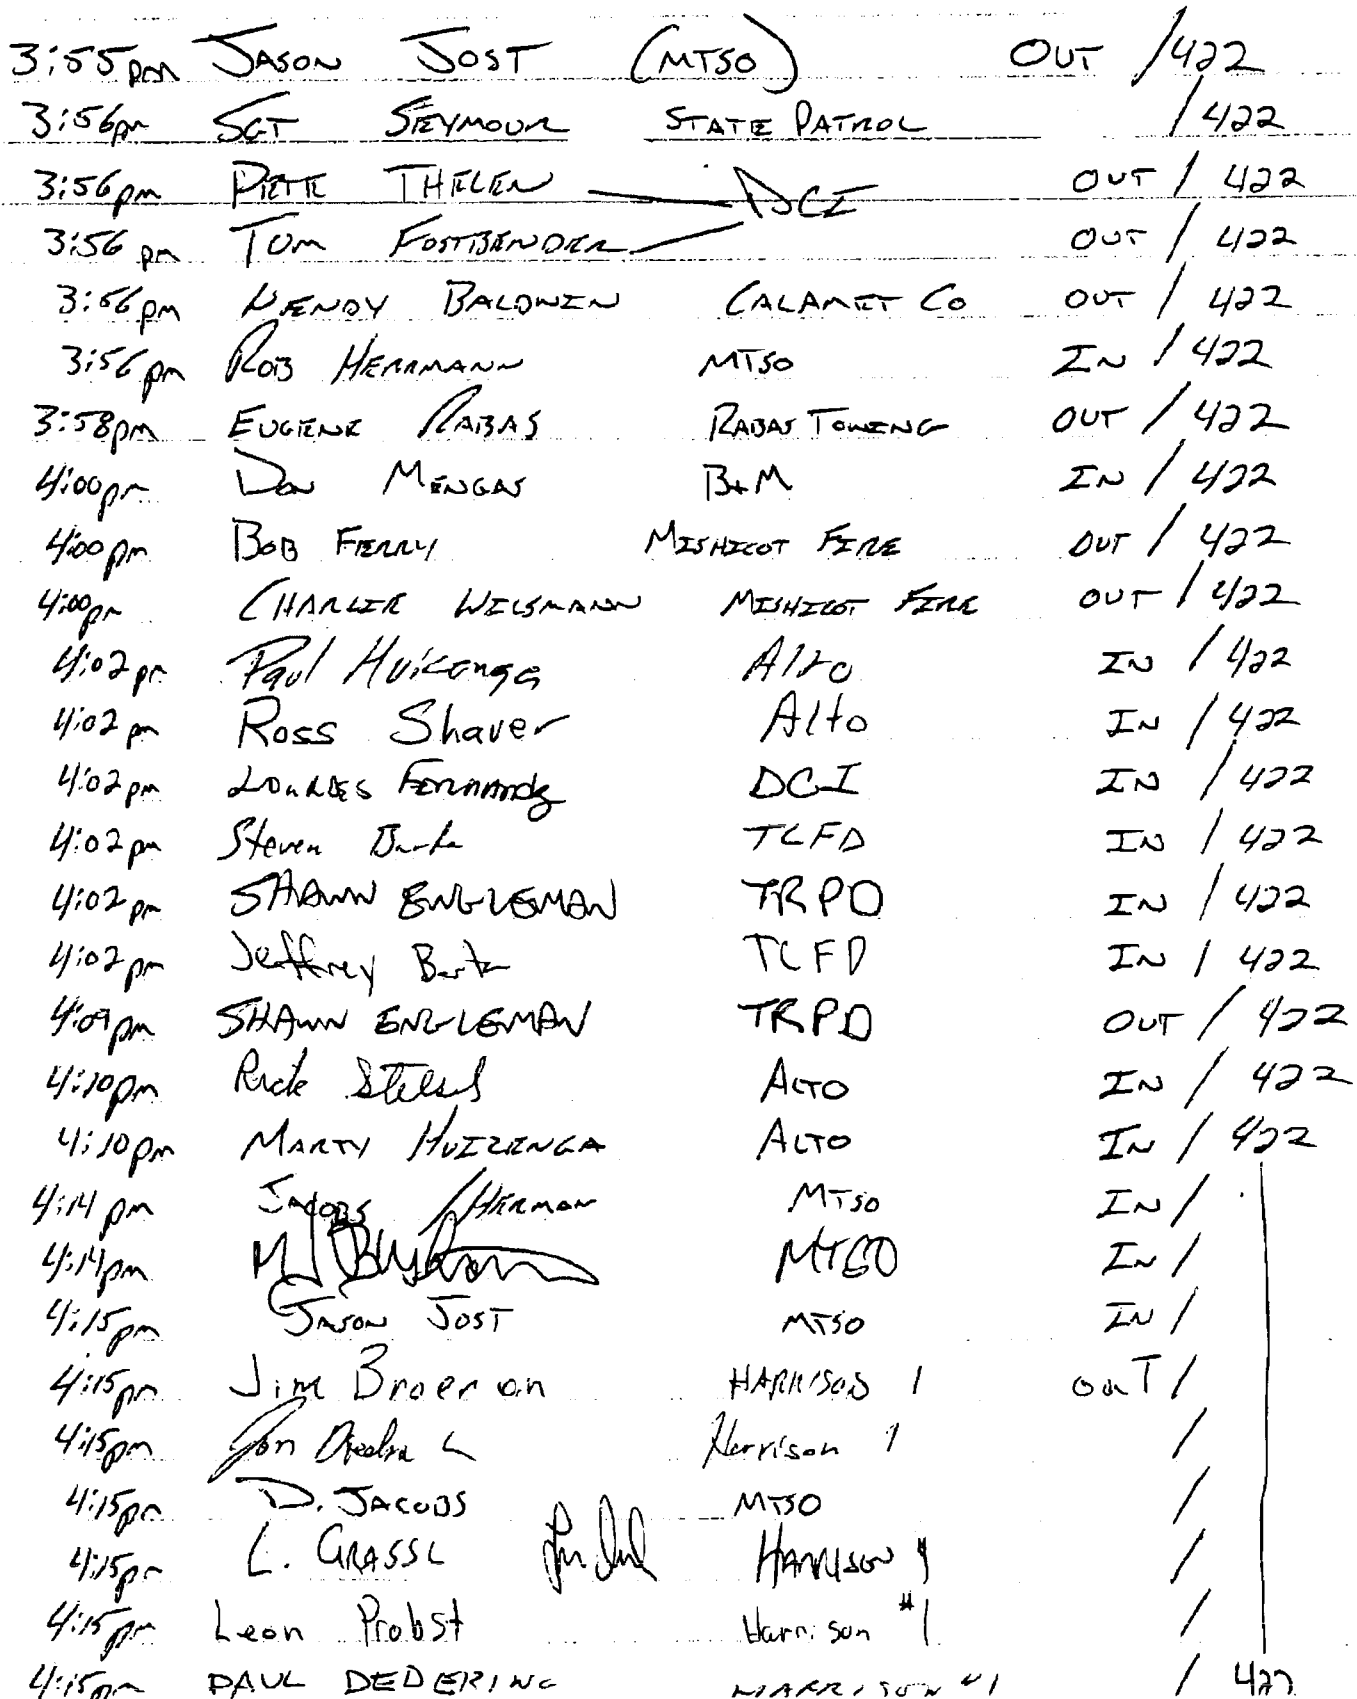 3:55pm JASON JOST (MTSO) OUT /422
3:56pm SGT SEYMOUR STATE PATROL /422
3:56pm PETE THELEN DCI OUT / 422
3:56 pm TOM FOSTBENDER OUT / 422
3:56 pm WENDY BALDWIN CALAMET CO OUT / 422
3:56 pm ROB HERRMANN MTSO IN / 422
3:58pm EUGENE RABAS RABAS TOWING OUT / 422
4:00pm DON MENGAS B+M IN / 422
4:00 pm BOB FERRY MISHICOT FIRE OUT / 422
4:00pm CHARLIE WILSMANN MISHICOT FIRE OUT / 422
4:02 pm Paul Huizenga Alto IN / 422
4:02 pm Ross Shaver Alto IN / 422
4:02 pm LOURDES Fernandez DCI IN / 422
4:02 pm Steven TCFD IN / 422
4:02 pm SHAWN ENGLEMAN TRPD IN / 422
4:02 pm Jeffrey TCFD IN / 422
4:09 pm SHAWN ENGLEMAN TRPD OUT / 422
4:10pm Rick ALTO IN / 422
4:10pm MARTY HUIZENGA ALTO IN / 422
4:14 pm JACOBS / HERMAN MTSO IN /
4:14pm MTSO IN /
4:15pm JASON JOST MTSO IN /
4:15pm Jim HARRISON 1 OUT /
4:15pm Jon Harrison 1 /
4:15pm D. JACOBS MTSO /
4:15pm L. GRASSL HARRISON 1 /
4:15pm Leon Probst Harrison #1 /
4:15pm PAUL DEDERING HARRISON #1 / 422